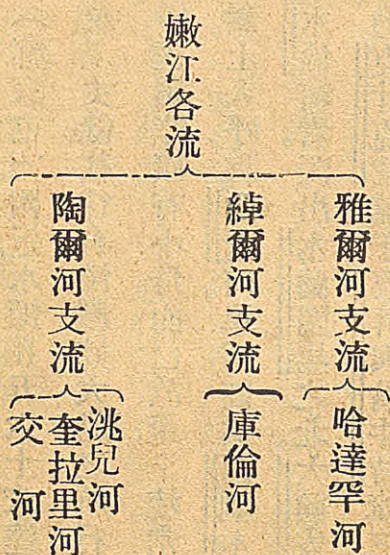 嫩江各流
雅爾河支流
哈達罕河
綽爾河支流
庫倫河
陶爾河支流
洮兒河
奎拉里河
交河